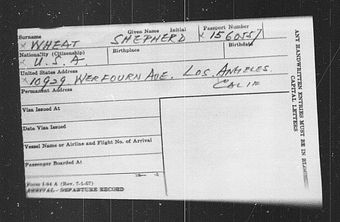 Surname Given Name Initial Passport Number
x WHEAT SHEPHERD x 1560557
Nationality (Citizenship) Birthplace Birthdate
x U.S.A.
United States Address
x 10929 AVE. LOS ANGELES.
CALIF
Permanent Address
Visa Issued At
Date Visa Issued
Vessel Name or Airline and Flight No. of Arrival
Passenger Boarded At
Form I-94 A (Rev. 7-1-67)
ARRIVAL-DEPARTURE RECORD
ANY HANDWRITTEN ENTRIES MUST BE IN
CAPITAL LETTERS